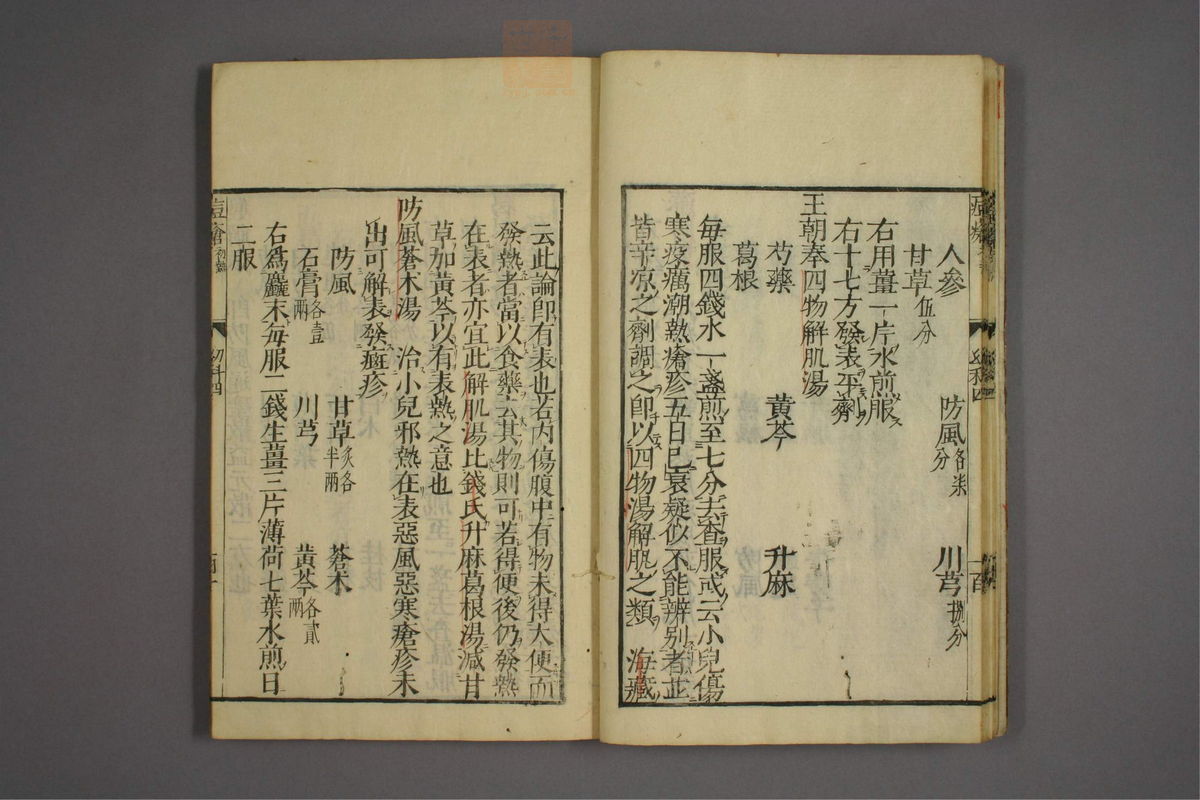 人參　防風各柒分　川芎捌分
甘草伍分
右用薑一片水煎服
右十七方發表平劑
王朝奉四物解肌湯
芍藥　黃芩　升麻
葛根
每服四錢水一盞煎至七分去查服或云小兒傷
寒疫癘潮熱瘡疹五日已衰疑似不能辨别者並
皆辛凉之劑調之即以四物湯解肌之類　海藏
云此論即有表也若内傷腹中有物未得大便而
發熱者當以食藥去其物則可若得便後仍發熱
在表者亦宜此解肌湯比錢氏升麻葛根湯減甘
草加黃芩以有表熱之意也
防風蒼木湯　治小兒邪熱在表惡風惡寒瘡疹未
出可解表發班疹
防風　甘草炙各半兩　蒼木
石膏各壹兩　川芎　黃芩各貳兩
右爲麤末每服二錢生薑三片薄荷七葉水煎日
二服
痘瘡
幼科四